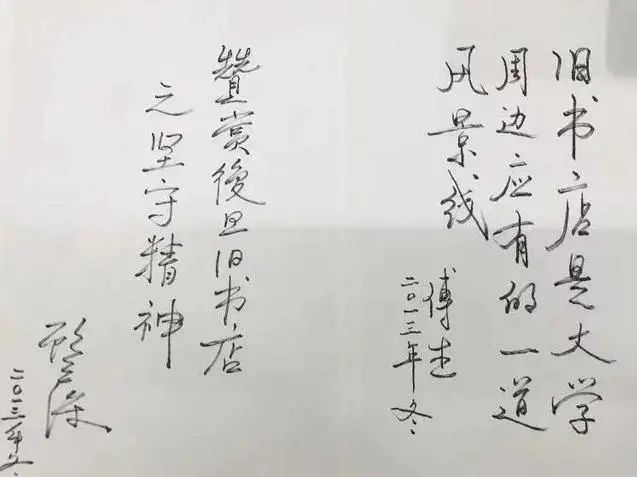 旧书店是大学
周边应有的一道
风景线
傅杰
二〇一三年冬
赞赏復旦旧书店
之坚守精神
二〇一三年冬